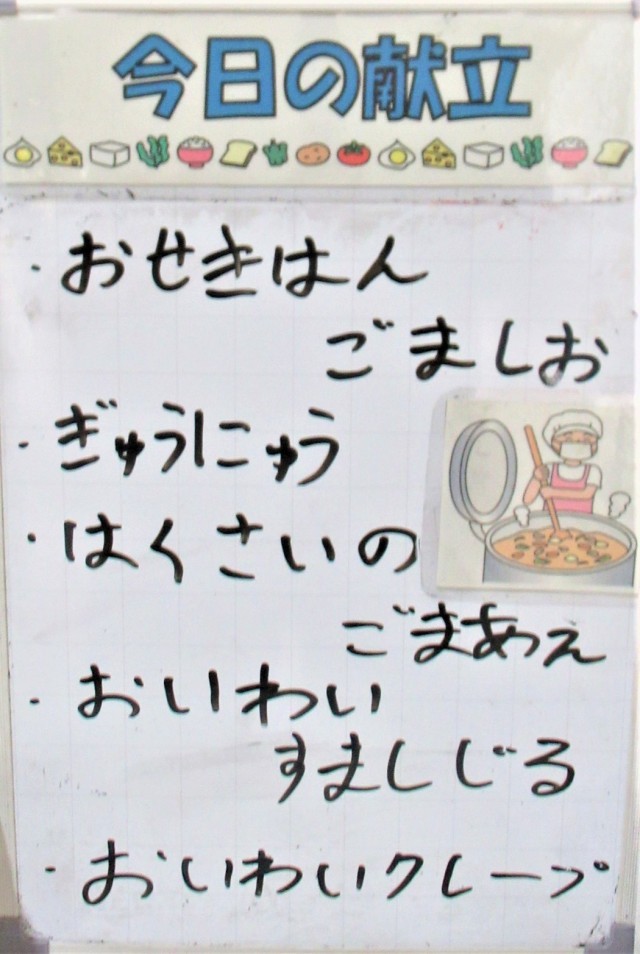 今日の献立
・おせきはん
ごましお
・ぎゅうにゅう
・はくさいの
ごまあえ
・おいわい
すましじる
・おいわいクレープ